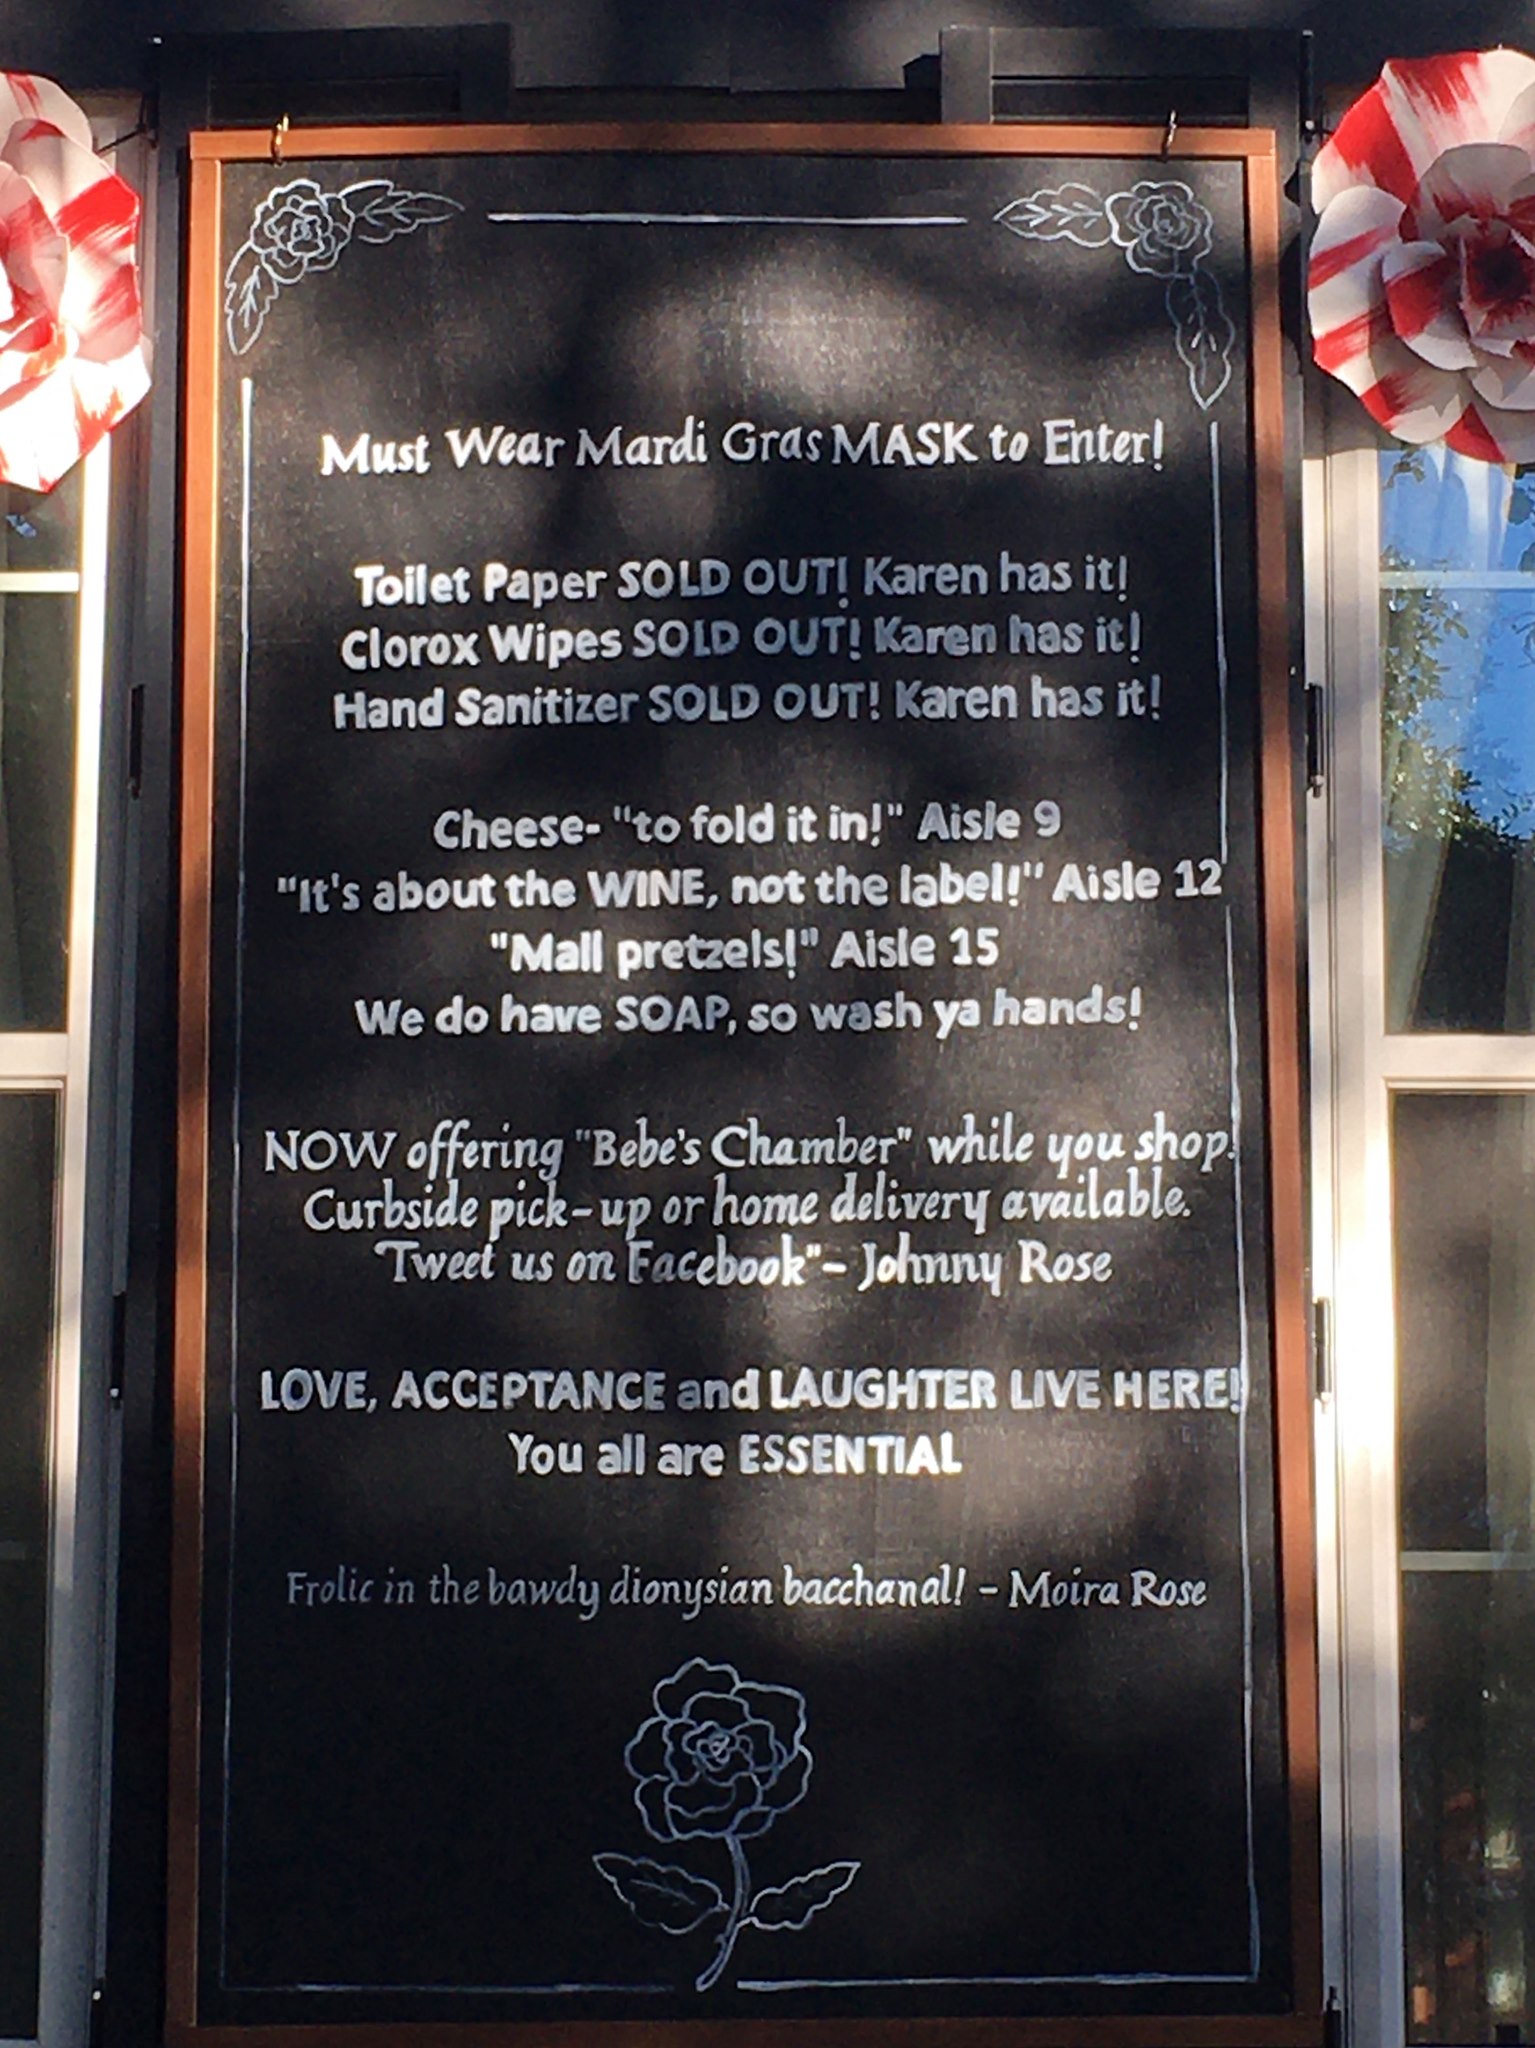 Must Wear Mardi Gras MASK to Enter!
Toilet Paper SOLD OUT! Karen has it!
Clorox Wipes SOLD OUT! Karen has it!
Hand Sanitizer SOLD OUT! Karen has it!
Cheese- "to fold it in!" Aisle 9
"It's about the WINE, not the label!" Aisle 12
"Mall pretzels!" Aisle 15
We do have SOAP, so wash ya hands!
NOW offering "Bebe's Chamber" while you shop!
Curbside pick-up or home delivery available.
"Tweet us on Facebook" - Johnny Rose
LOVE, ACCEPTANCE and LAUGHTER LIVE HERE!
You all are ESSENTIAL
Frolic in the bawdy dionysian bacchanal! - Moira Rose